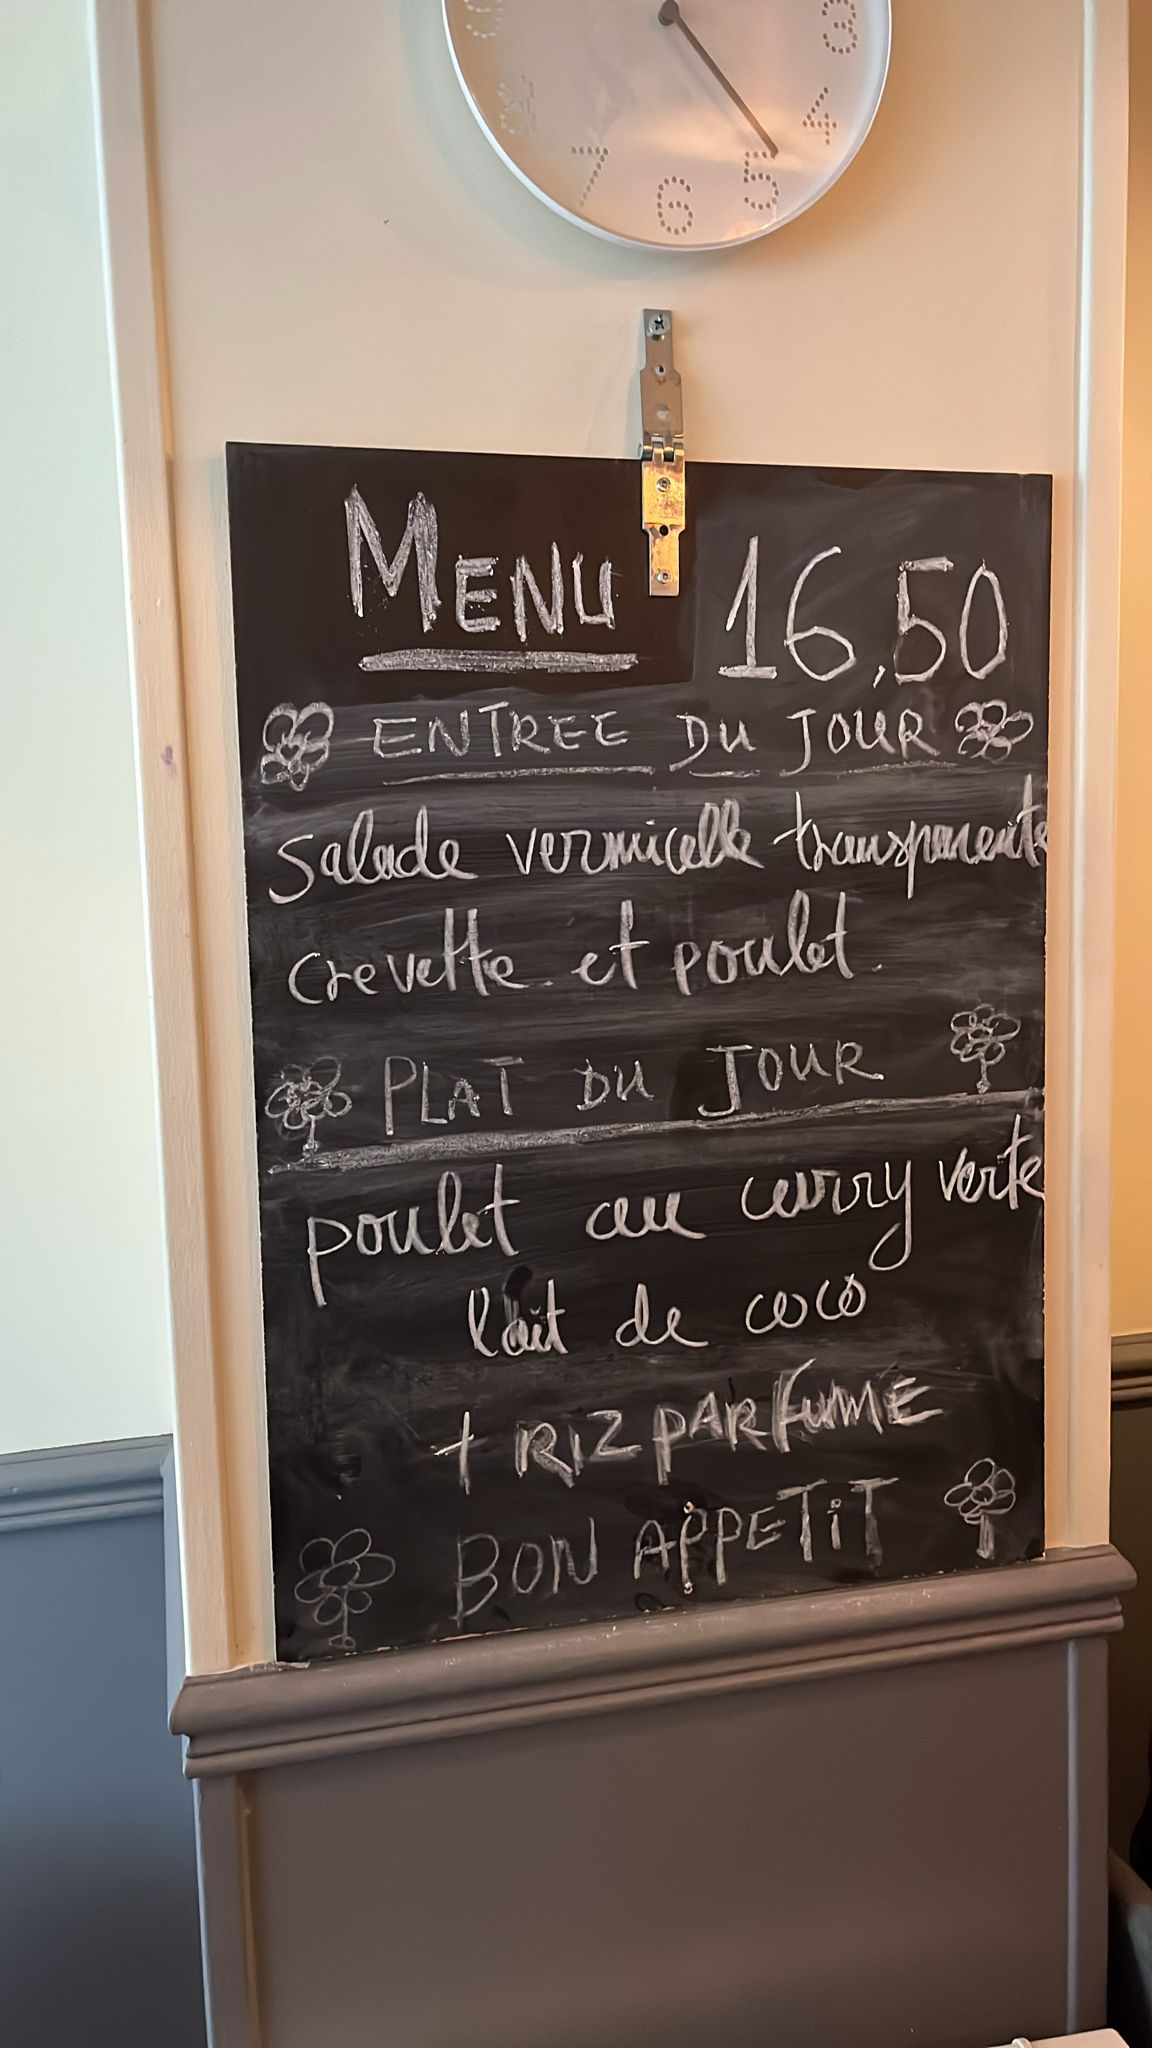 3
4
5
6
7
MENU 16,50
ENTREE DU JOUR
Salade vermicelle transparente
crevette et poulet.
PLAT DU JOUR
poulet au curry verte
lait de coco
+ RIZ PARFUME
BON APPETIT